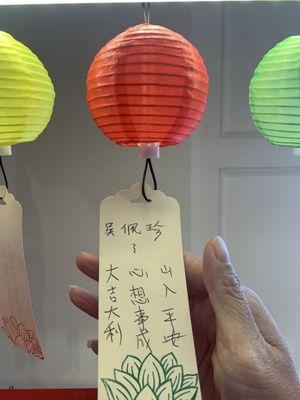 吳佩珍
出入平安
心想事成
大吉大利